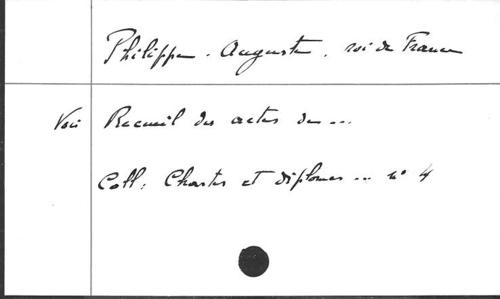 Philippe-Auguste, roi de France
Voir Recueil des actes de ...
Coll: Chartes et diplomes ... n° 4